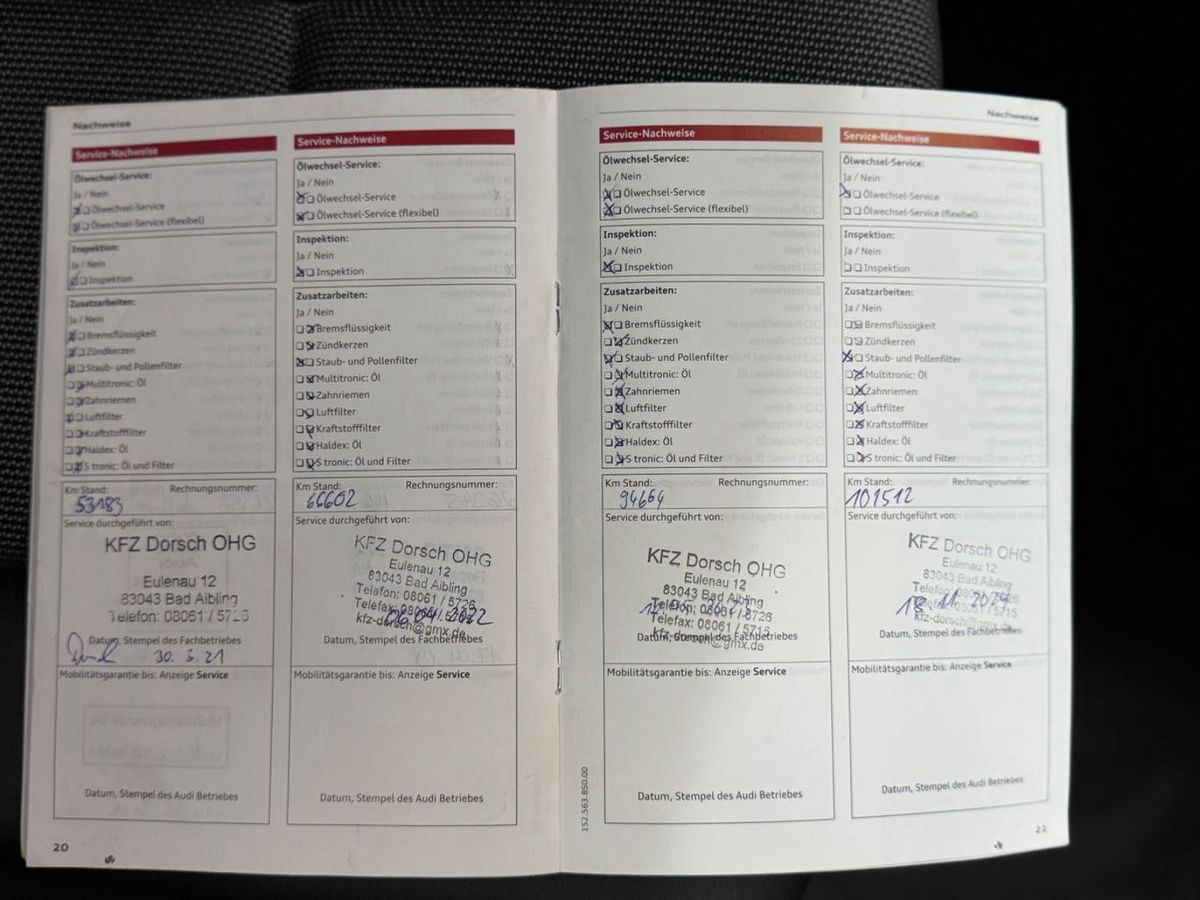 Nachweise
Service-Nachweise
Ölwechsel-Service:
Ja / Nein
Ölwechsel-Service
Ölwechsel-Service (flexibel)
Inspektion:
Ja / Nein
Inspektion
Zusatzarbeiten:
Ja / Nein
Bremsflüssigkeit
Zündkerzen
Staub- und Pollenfilter
Multitronic: Öl
Zahnriemen
Luftfilter
Kraftstofffilter
Haldex: Öl
S tronic: Öl und Filter
Km Stand: Rechnungsnummer:
53183
Service durchgeführt von:
KFZ Dorsch OHG
Eulenau 12
83043 Bad Aibling
Telefon: 08061 / 5726
Datum, Stempel des Fachbetriebes
30. 3. 21
Mobilitätsgarantie bis: Anzeige Service
Datum, Stempel des Audi Betriebes
20
Service-Nachweise
Ölwechsel-Service:
Ja / Nein
Ölwechsel-Service
Ölwechsel-Service (flexibel)
Inspektion:
Ja / Nein
Inspektion
Zusatzarbeiten:
Ja / Nein
Bremsflüssigkeit
Zündkerzen
Staub- und Pollenfilter
Multitronic: Öl
Zahnriemen
Luftfilter
Kraftstofffilter
Haldex: Öl
S tronic: Öl und Filter
Km Stand: Rechnungsnummer:
66602
Service durchgeführt von:
KFZ Dorsch OHG
Eulenau 12
83043 Bad Aibling
Telefon: 08061 / 5726
Telefax:
06.04.2022
kfz-dorsch@gmx.de
Datum, Stempel des Fachbetriebes
Mobilitätsgarantie bis: Anzeige Service
Datum, Stempel des Audi Betriebes
Nachweise
Service-Nachweise
Ölwechsel-Service:
Ja / Nein
Ölwechsel-Service
Ölwechsel-Service (flexibel)
Inspektion:
Ja / Nein
Inspektion
Zusatzarbeiten:
Ja / Nein
Bremsflüssigkeit
Zündkerzen
Staub- und Pollenfilter
Multitronic: Öl
Zahnriemen
Luftfilter
Kraftstofffilter
Haldex: Öl
S tronic: Öl und Filter
Km Stand: Rechnungsnummer:
94664
Service durchgeführt von:
KFZ Dorsch OHG
Eulenau 12
83043 Bad Aibling
Telefon: 08061 / 5726
Telefax: 08061 / 5715
kfz-dorsch@gmx.de
Datum, Stempel des Fachbetriebes
Mobilitätsgarantie bis: Anzeige Service
Datum, Stempel des Audi Betriebes
152.563.850.00
Service-Nachweise
Ölwechsel-Service:
Ja / Nein
Ölwechsel-Service
Ölwechsel-Service (flexibel)
Inspektion:
Ja / Nein
Inspektion
Zusatzarbeiten:
Ja / Nein
Bremsflüssigkeit
Zündkerzen
Staub- und Pollenfilter
Multitronic: Öl
Zahnriemen
Luftfilter
Kraftstofffilter
Haldex: Öl
S tronic: Öl und Filter
Km Stand: Rechnungsnummer:
101512
Service durchgeführt von:
KFZ Dorsch OHG
Eulenau 12
83043 Bad Aibling
18. 11. 2024
kfz-dorsch@gmx.de
Datum, Stempel des Fachbetriebes
Mobilitätsgarantie bis: Anzeige Service
Datum, Stempel des Audi Betriebes
21